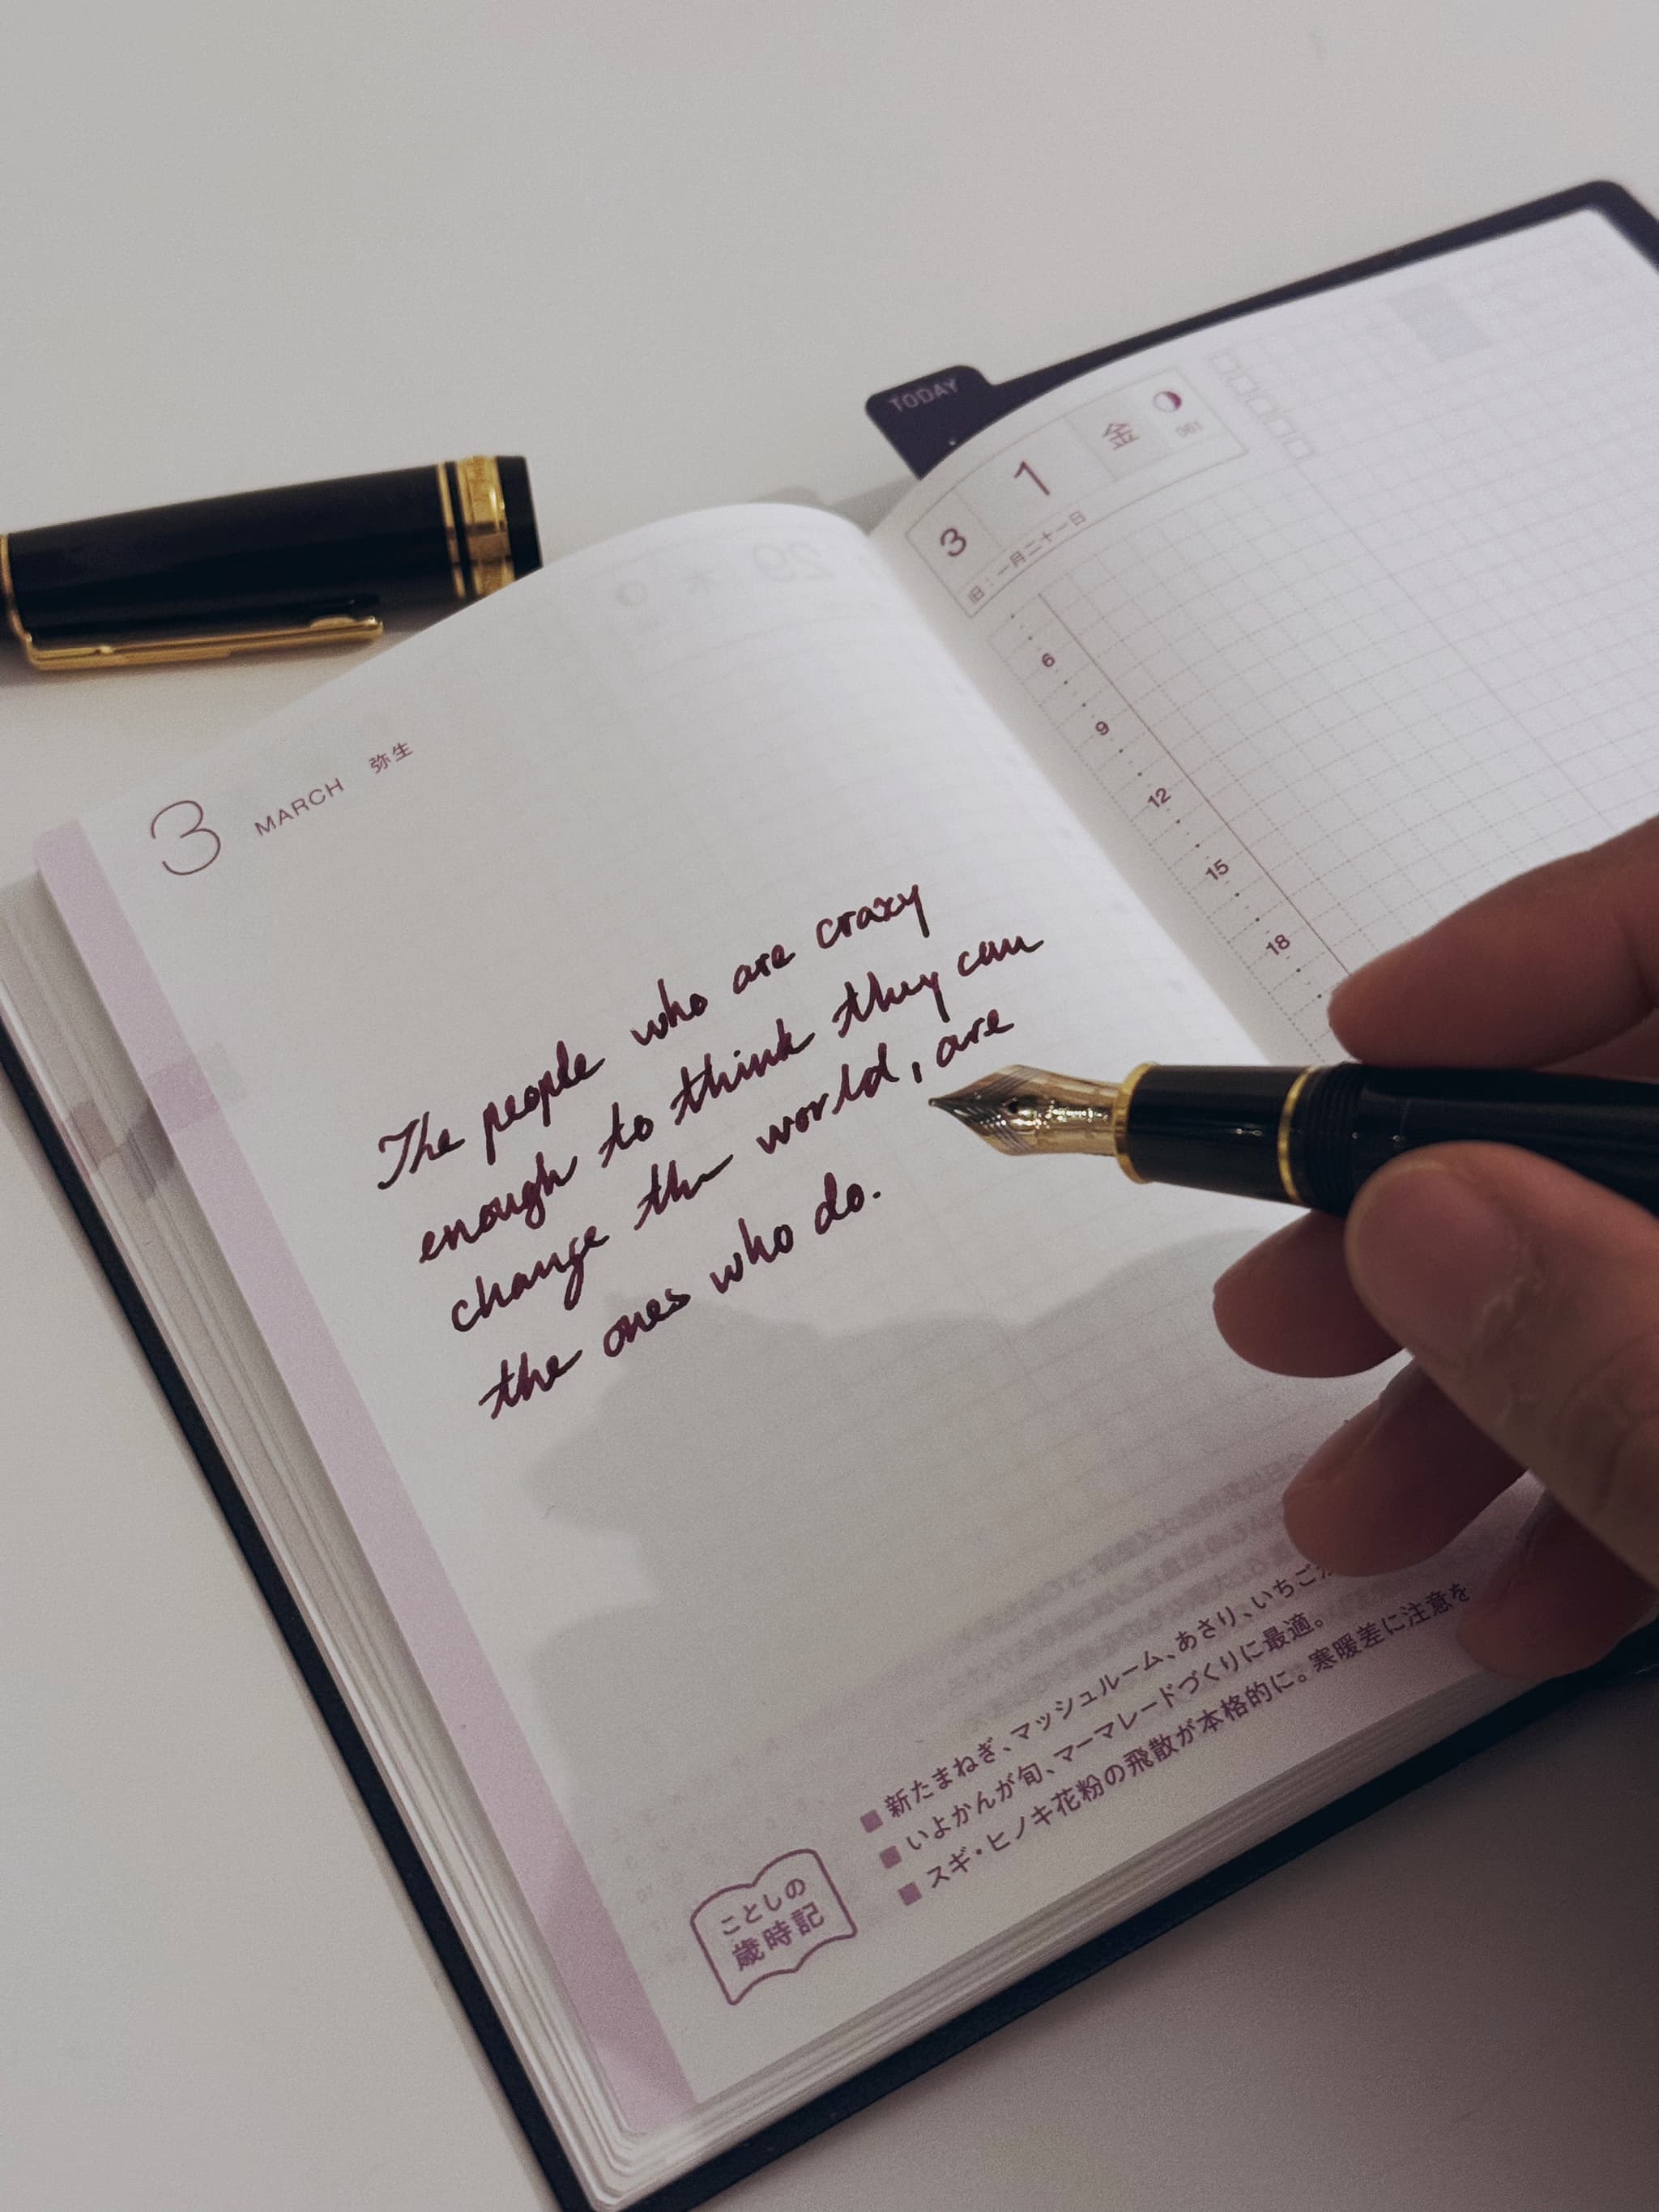 TODAY
3 1 金
061
旧：一月二十一日
6
9
12
15
18
3 MARCH 弥生
The people who are crazy
enough to think they can
change the world, are
the ones who do.
■ 新たまねぎ、マッシュルーム、あさり、いちご
■ いよかんが旬、マーマレードづくりに最適。
■ スギ・ヒノキ花粉の飛散が本格的に。寒暖差に注意を
ことしの
歳時記